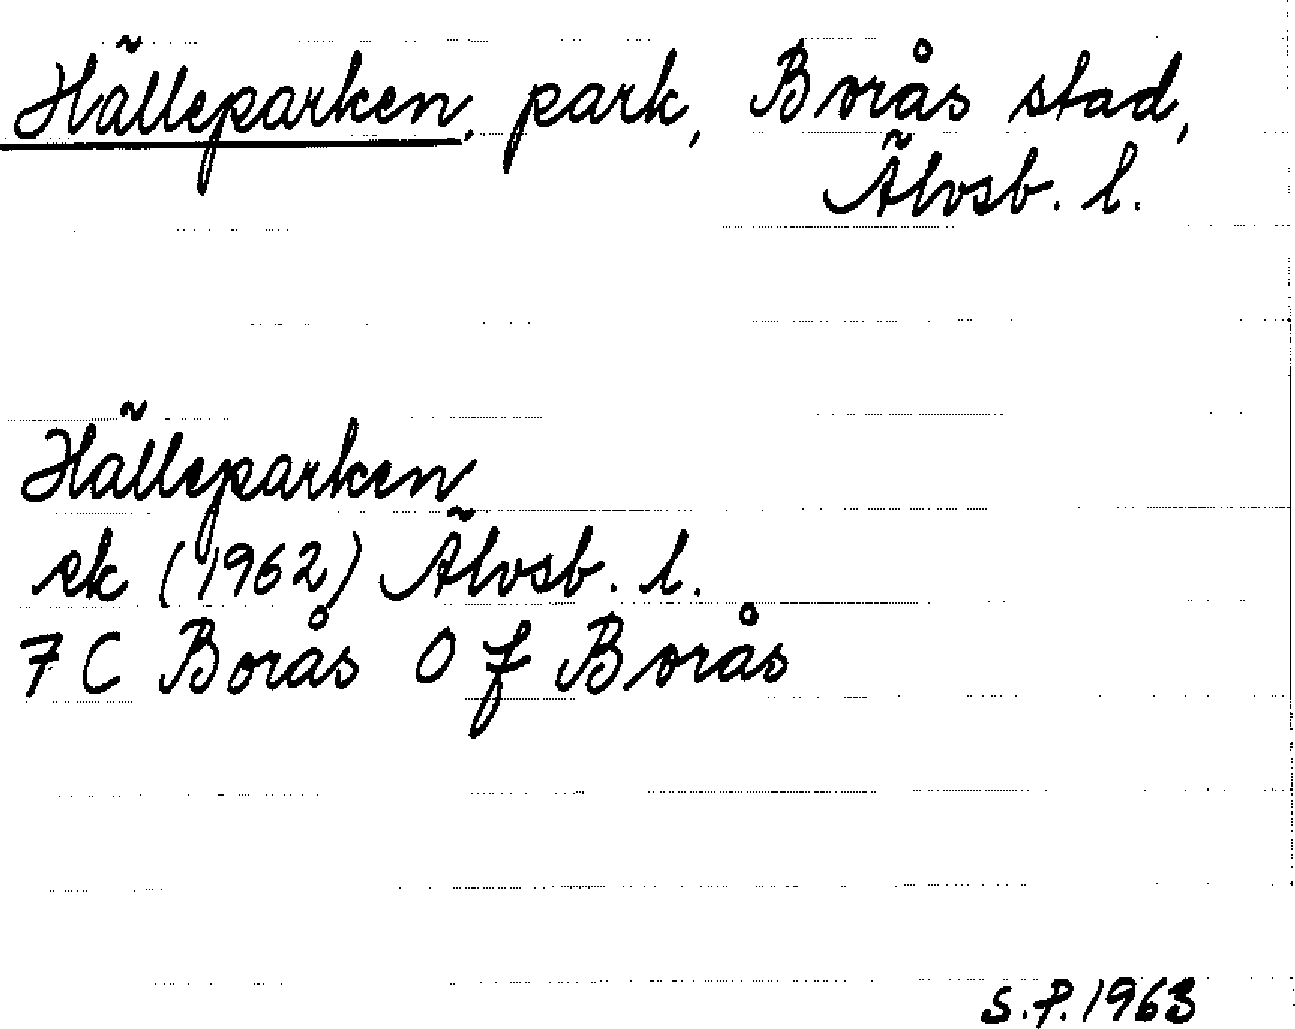 Hälleparken, park, Borås stad,
Älvsb. l.
Hälleparken
ek (1962) Älvsb. l.
7 C Borås 0 f Borås
S.P. 1963